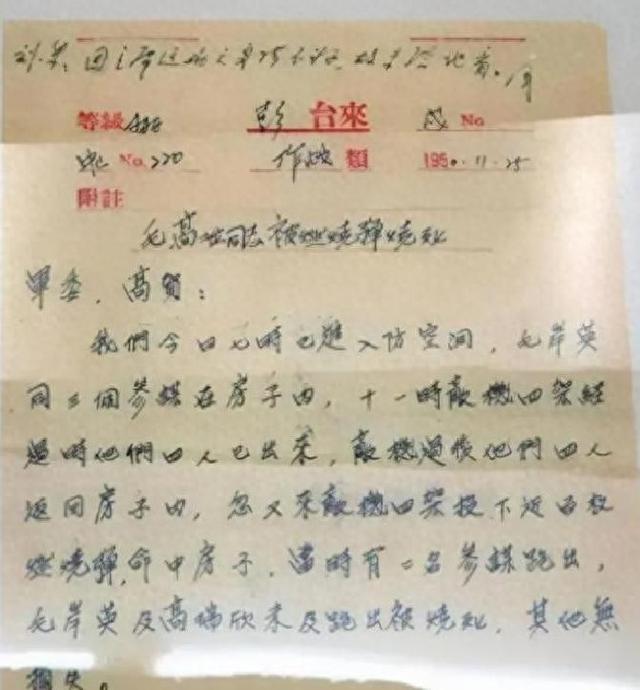 刘、
等級 AAAA 彭 台來 戌 No
No. 220 作战 類 1950.11.25
附註
毛高二同志被燃燒彈燒死
軍委，高賀：
我們今日七時已進入防空洞，毛岸英
同三個參謀在房子內，十一時敵機四架經
過時他們四人已出來，敵機過後他們四人
返回房子內，忽又來敵機四架投下近百枚
燃燒彈，命中房子，當時有二名參謀跑出，
毛岸英及高瑞欣未及跑出被燒死，其他無
損失。